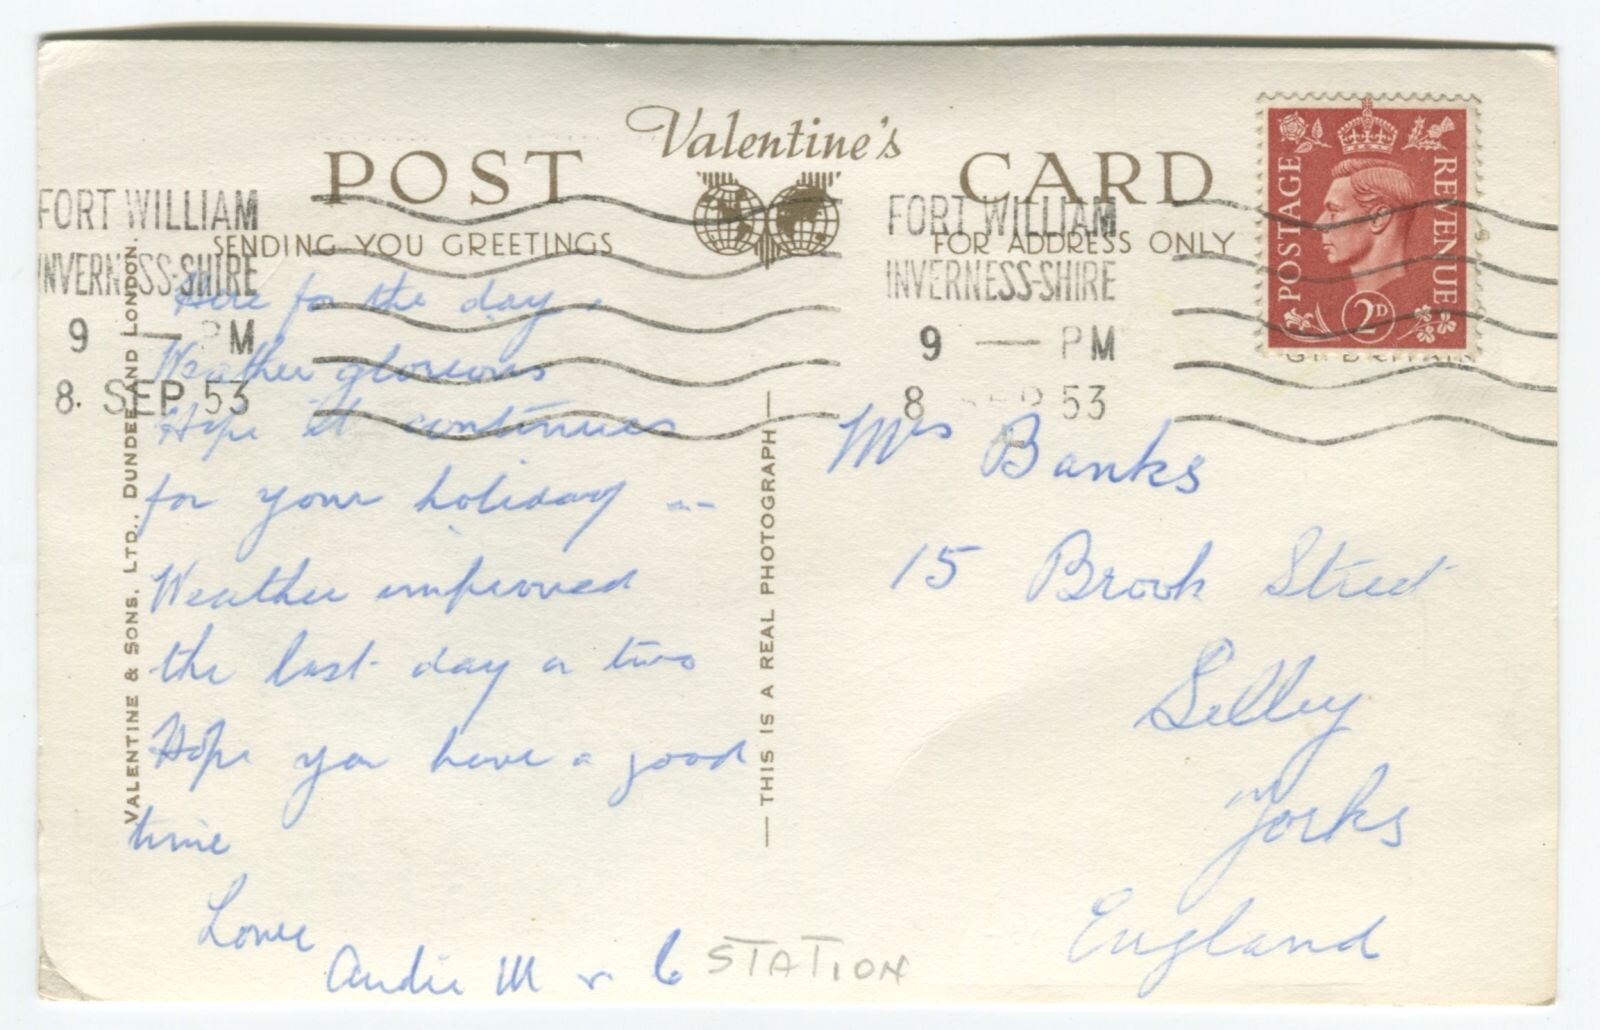 Valentine's
POST CARD
SENDING YOU GREETINGS
FOR ADDRESS ONLY
FORT WILLIAM
INVERNESS-SHIRE
9 — PM
8. SEP 53
FORT WILLIAM
INVERNESS-SHIRE
9 — PM
8 SEP 53
POSTAGE
REVENUE
2D
VALENTINE & SONS, LTD., DUNDEE AND LONDON.
— THIS IS A REAL PHOTOGRAPH —
Here for the day.
Weather glorious
Hope it continues
for your holiday --
Weather improved
the last day or two
Hope you have a good
time
Love
Audie M & C
STATION
Mrs Banks
15 Brook Street
Selby
Yorks
England